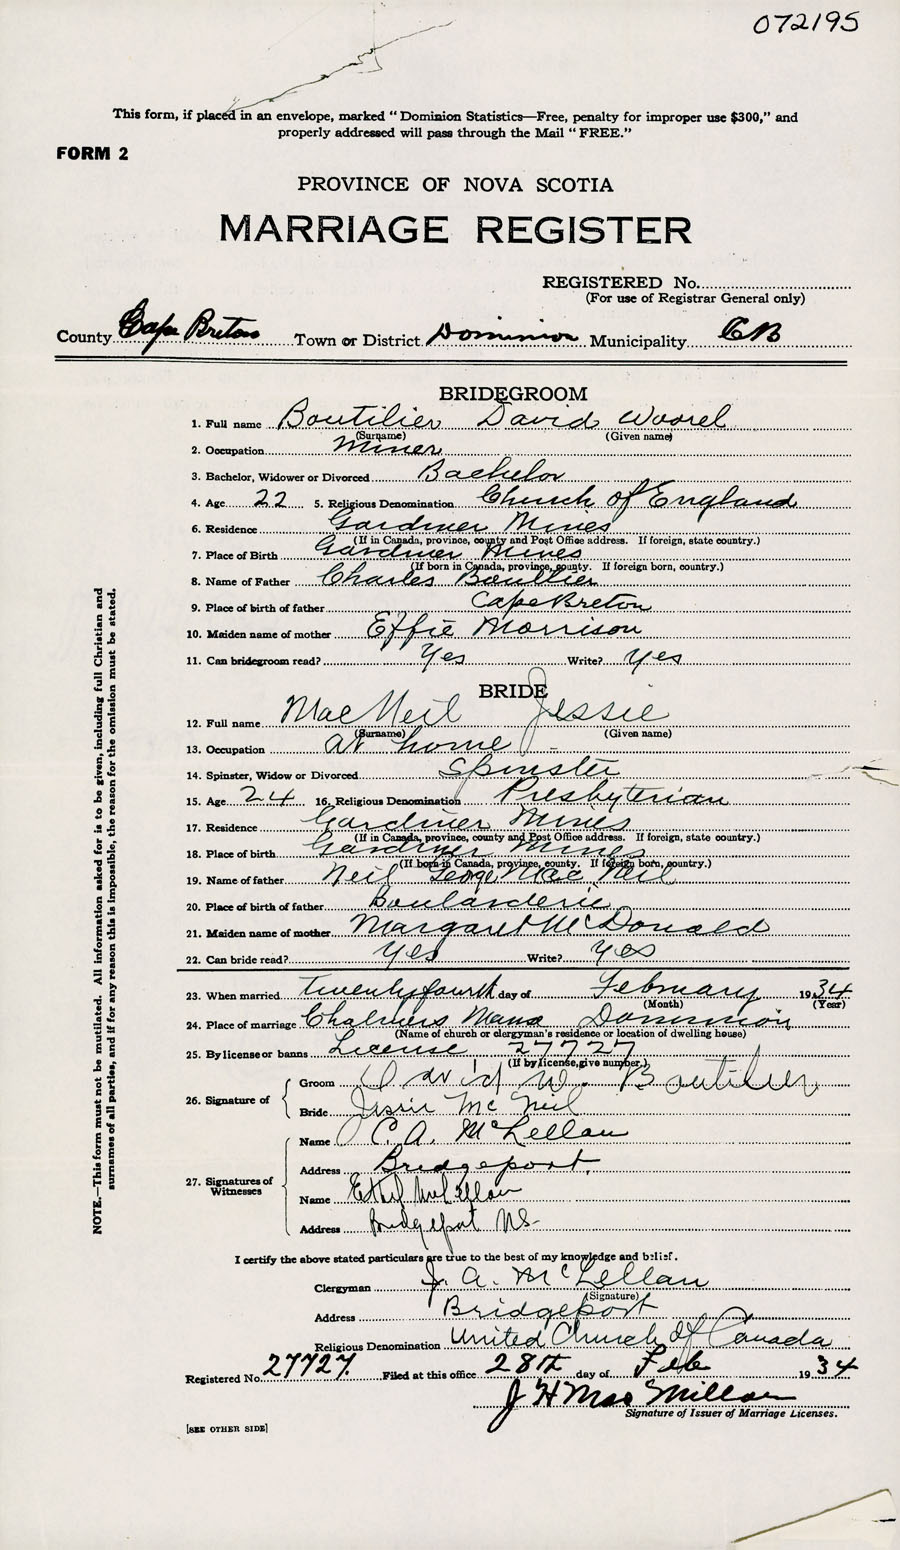 072195
This form, if placed in an envelope, marked "Dominion Statistics—Free, penalty for improper use $300," and
properly addressed will pass through the Mail "FREE."
FORM 2
PROVINCE OF NOVA SCOTIA
MARRIAGE REGISTER
REGISTERED No.
(For use of Registrar General only)
County Cape Breton Town or District Dominion Municipality CB
BRIDEGROOM
1. Full name Boutilier David
(Surname) (Given name)
2. Occupation Miner
3. Bachelor, Widower or Divorced Bachelor
4. Age 22 5. Religious Denomination Church of England
6. Residence Gardiner Mines
(If in Canada, province, county and Post Office address. If foreign, state country.)
7. Place of Birth Gardiner Mines
(If born in Canada, province, county. If foreign born, country.)
8. Name of Father Charles Boutilier
9. Place of birth of father Cape Breton
10. Maiden name of mother Effie Morrison
11. Can bridegroom read? Yes Write? Yes
BRIDE
12. Full name MacNeil Jessie
(Surname) (Given name)
13. Occupation at home
14. Spinster, Widow or Divorced Spinster
15. Age 24 16. Religious Denomination Presbyterian
17. Residence Gardiner Mines
(If in Canada, province, county and Post Office address. If foreign, state country.)
18. Place of birth Gardiner Mines
(If born in Canada, province, county. If foreign born, country.)
19. Name of father Neil George MacNeil
20. Place of birth of father Boularderie
21. Maiden name of mother Margaret McDonald
22. Can bride read? Yes Write? Yes
23. When married Twenty fourth day of February 1934
(Month) (Year)
24. Place of marriage Chalmers Manse Dominion
(Name of church or clergyman's residence or location of dwelling house)
25. By license or banns License 27727
(If by license, give number.)
26. Signature of
Groom David W. Boutilier
Bride Jessie McNeil
27. Signatures of Witnesses
Name C. A. McLellan
Address Bridgeport.
Name Ethel McLellan
Address Bridgeport NS-
I certify the above stated particulars are true to the best of my knowledge and belief.
Clergyman J. A. McLellan
(Signature)
Address Bridgeport
Religious Denomination United Church of Canada
Registered No. 27727. Filed at this office 28th day of Feb 1934
J H MacMillan
Signature of Issuer of Marriage Licenses.
[SEE OTHER SIDE]
NOTE.—This form must not be mutilated. All information asked for is to be given, including full Christian and
surnames of all parties, and if for any reason this is impossible, the reason for the omission must be stated.